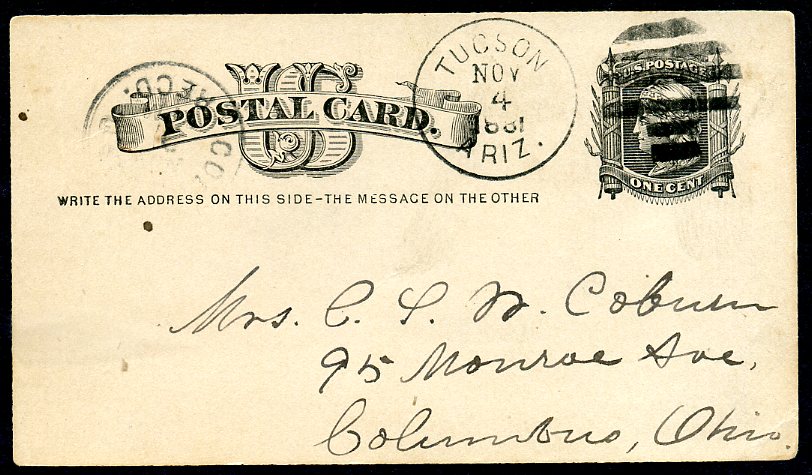 U S
POSTAL CARD.
TUCSON
NOV
4
1881
ARIZ.
U.S. POSTAGE
ONE CENT
REC'D.
WRITE THE ADDRESS ON THIS SIDE-THE MESSAGE ON THE OTHER
Mrs. C. S. W. Coburn
95 Monroe Ave,
Columbus, Ohio.